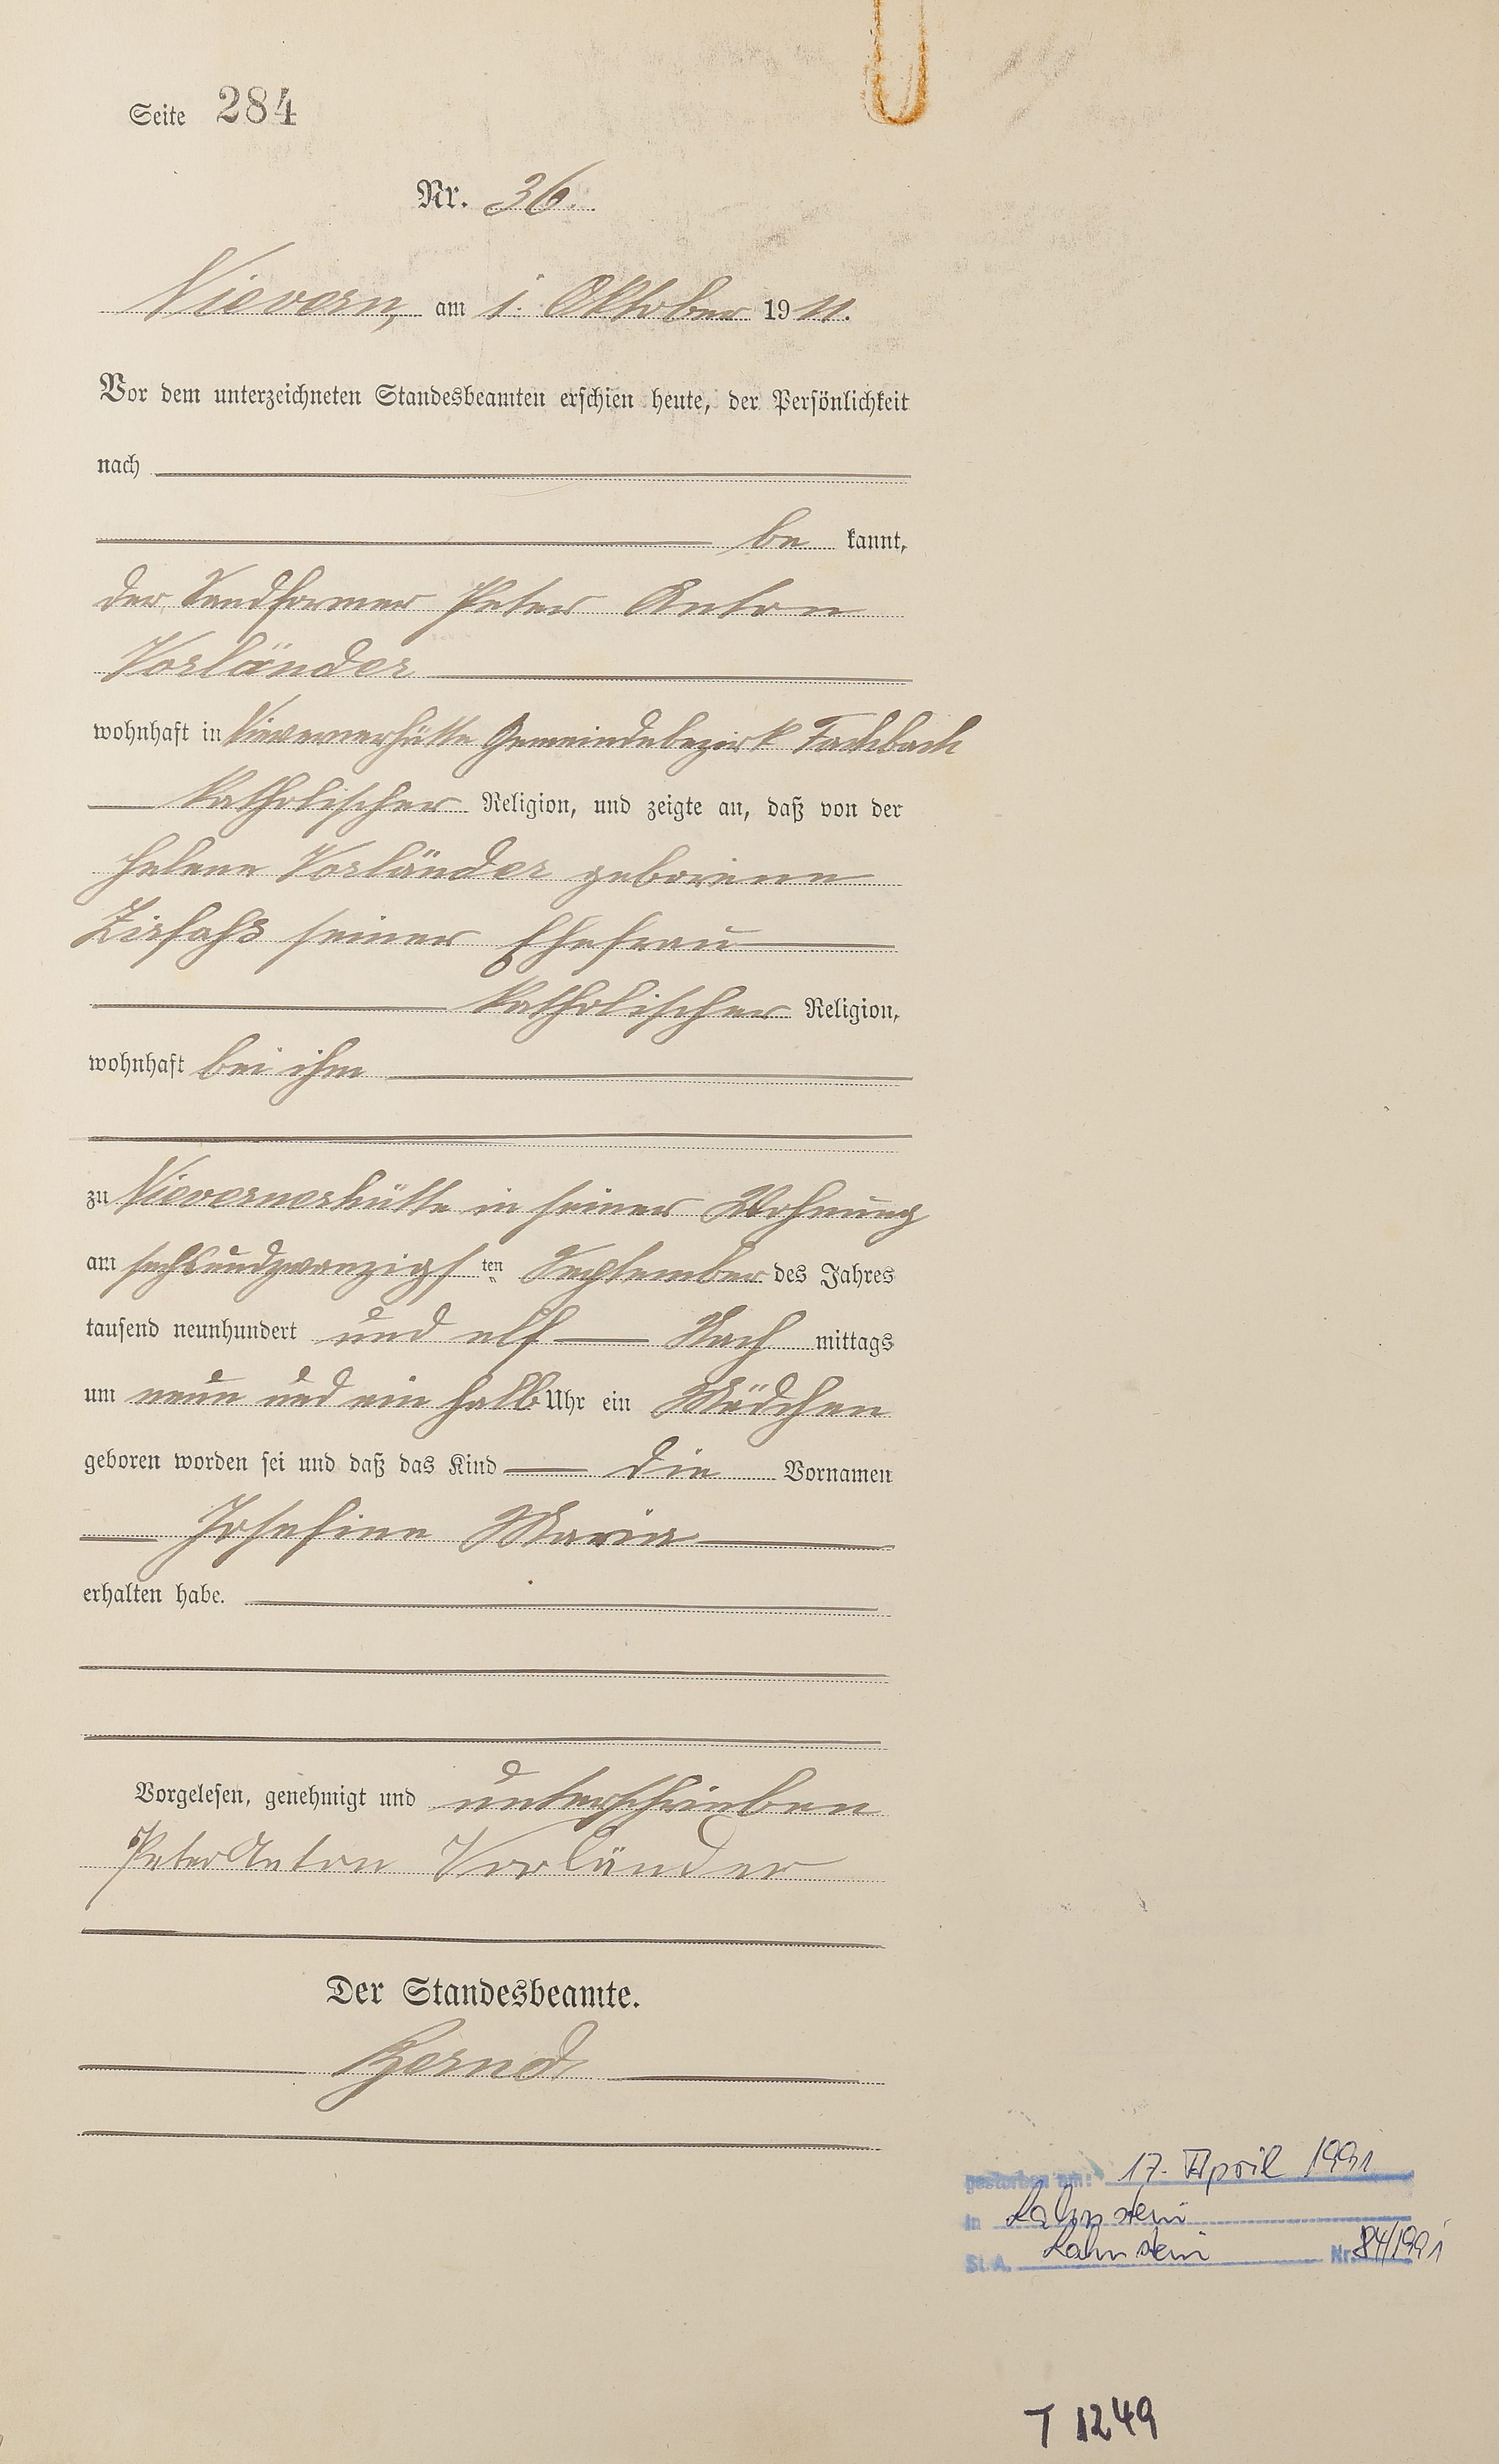 Seite 284
Nr. 36.
Nievern, am 1. Oktober 1911.
Vor dem unterzeichneten Standesbeamten erschien heute, der Persönlichkeit
nach
be kannt,
der Sandformer Peter Anton
Vorländer
wohnhaft in Nievernerhütte Gemeindebezirk Fachbach
katholischer Religion, und zeigte an, daß von der
Helene Vorländer geborene
Zirfahs seiner Ehefrau
katholischer Religion,
wohnhaft bei ihm
zu Nievernerhütte in seiner Wohnung
am sechsundzwanzigsten September des Jahres
tausend neunhundert und elf Nach mittags
um neun und ein halb Uhr ein Mädchen
geboren worden sei und daß das Kind die Vornamen
Josefine Maria
erhalten habe.
Vorgelesen, genehmigt und unterschrieben
Peter Anton Vorländer
Der Standesbeamte.
gestorben am: 17. April 1991
in Lahnstein
St. A. Lahnstein Nr. 84/1991
T 1249